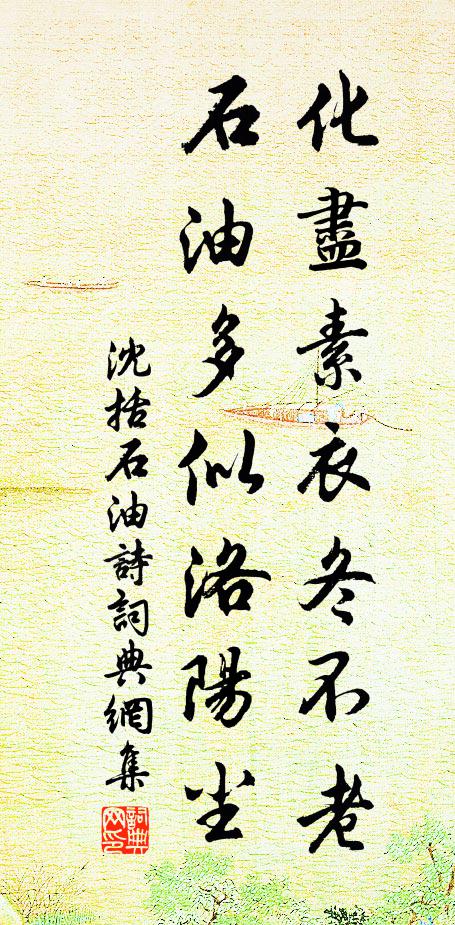 化盡素衣冬不老
石油多似洛陽尘
沈括石油詩詞典網集
詞典
网印